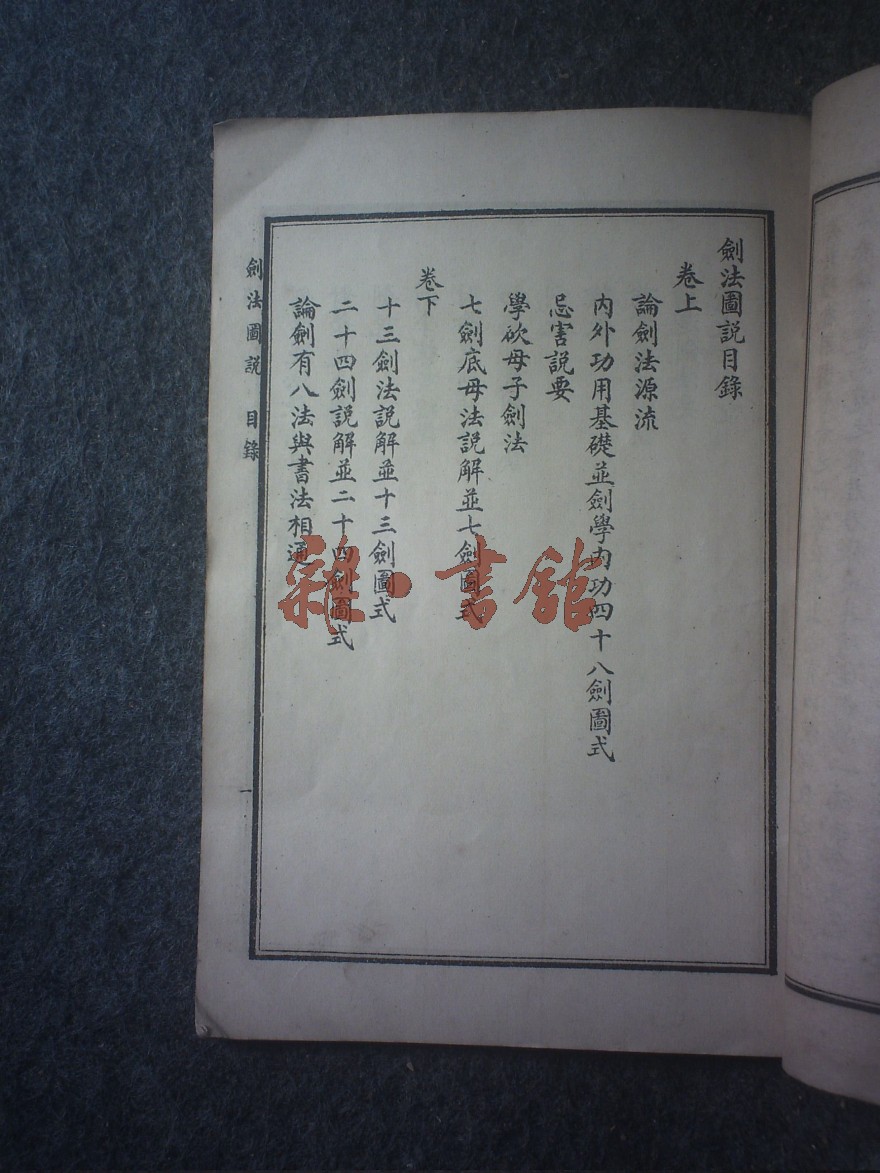 劍法圖說目錄
卷上
論劍法源流
內外功用基礎並劍學內功四十八劍圖式
忌害說要
學砍母子劍法
七劍底母法說解並七劍圖式
卷下
十三劍法說解並十三劍圖式
二十四劍說解並二十四劍圖式
論劍有八法與書法相通
劍法圖說 目錄
一
雜·書館